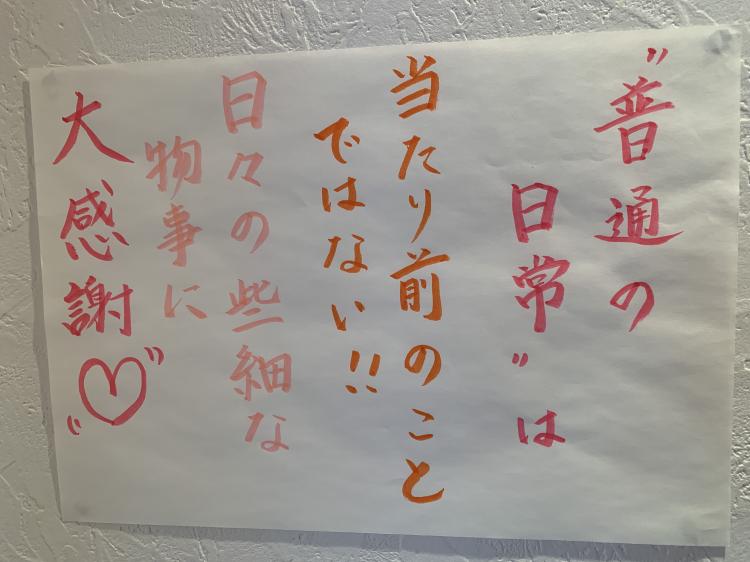 〝普通の
日常〟は
当たり前のこと
ではない!!
日々の些細な
物事に
大感謝♡〟
〟